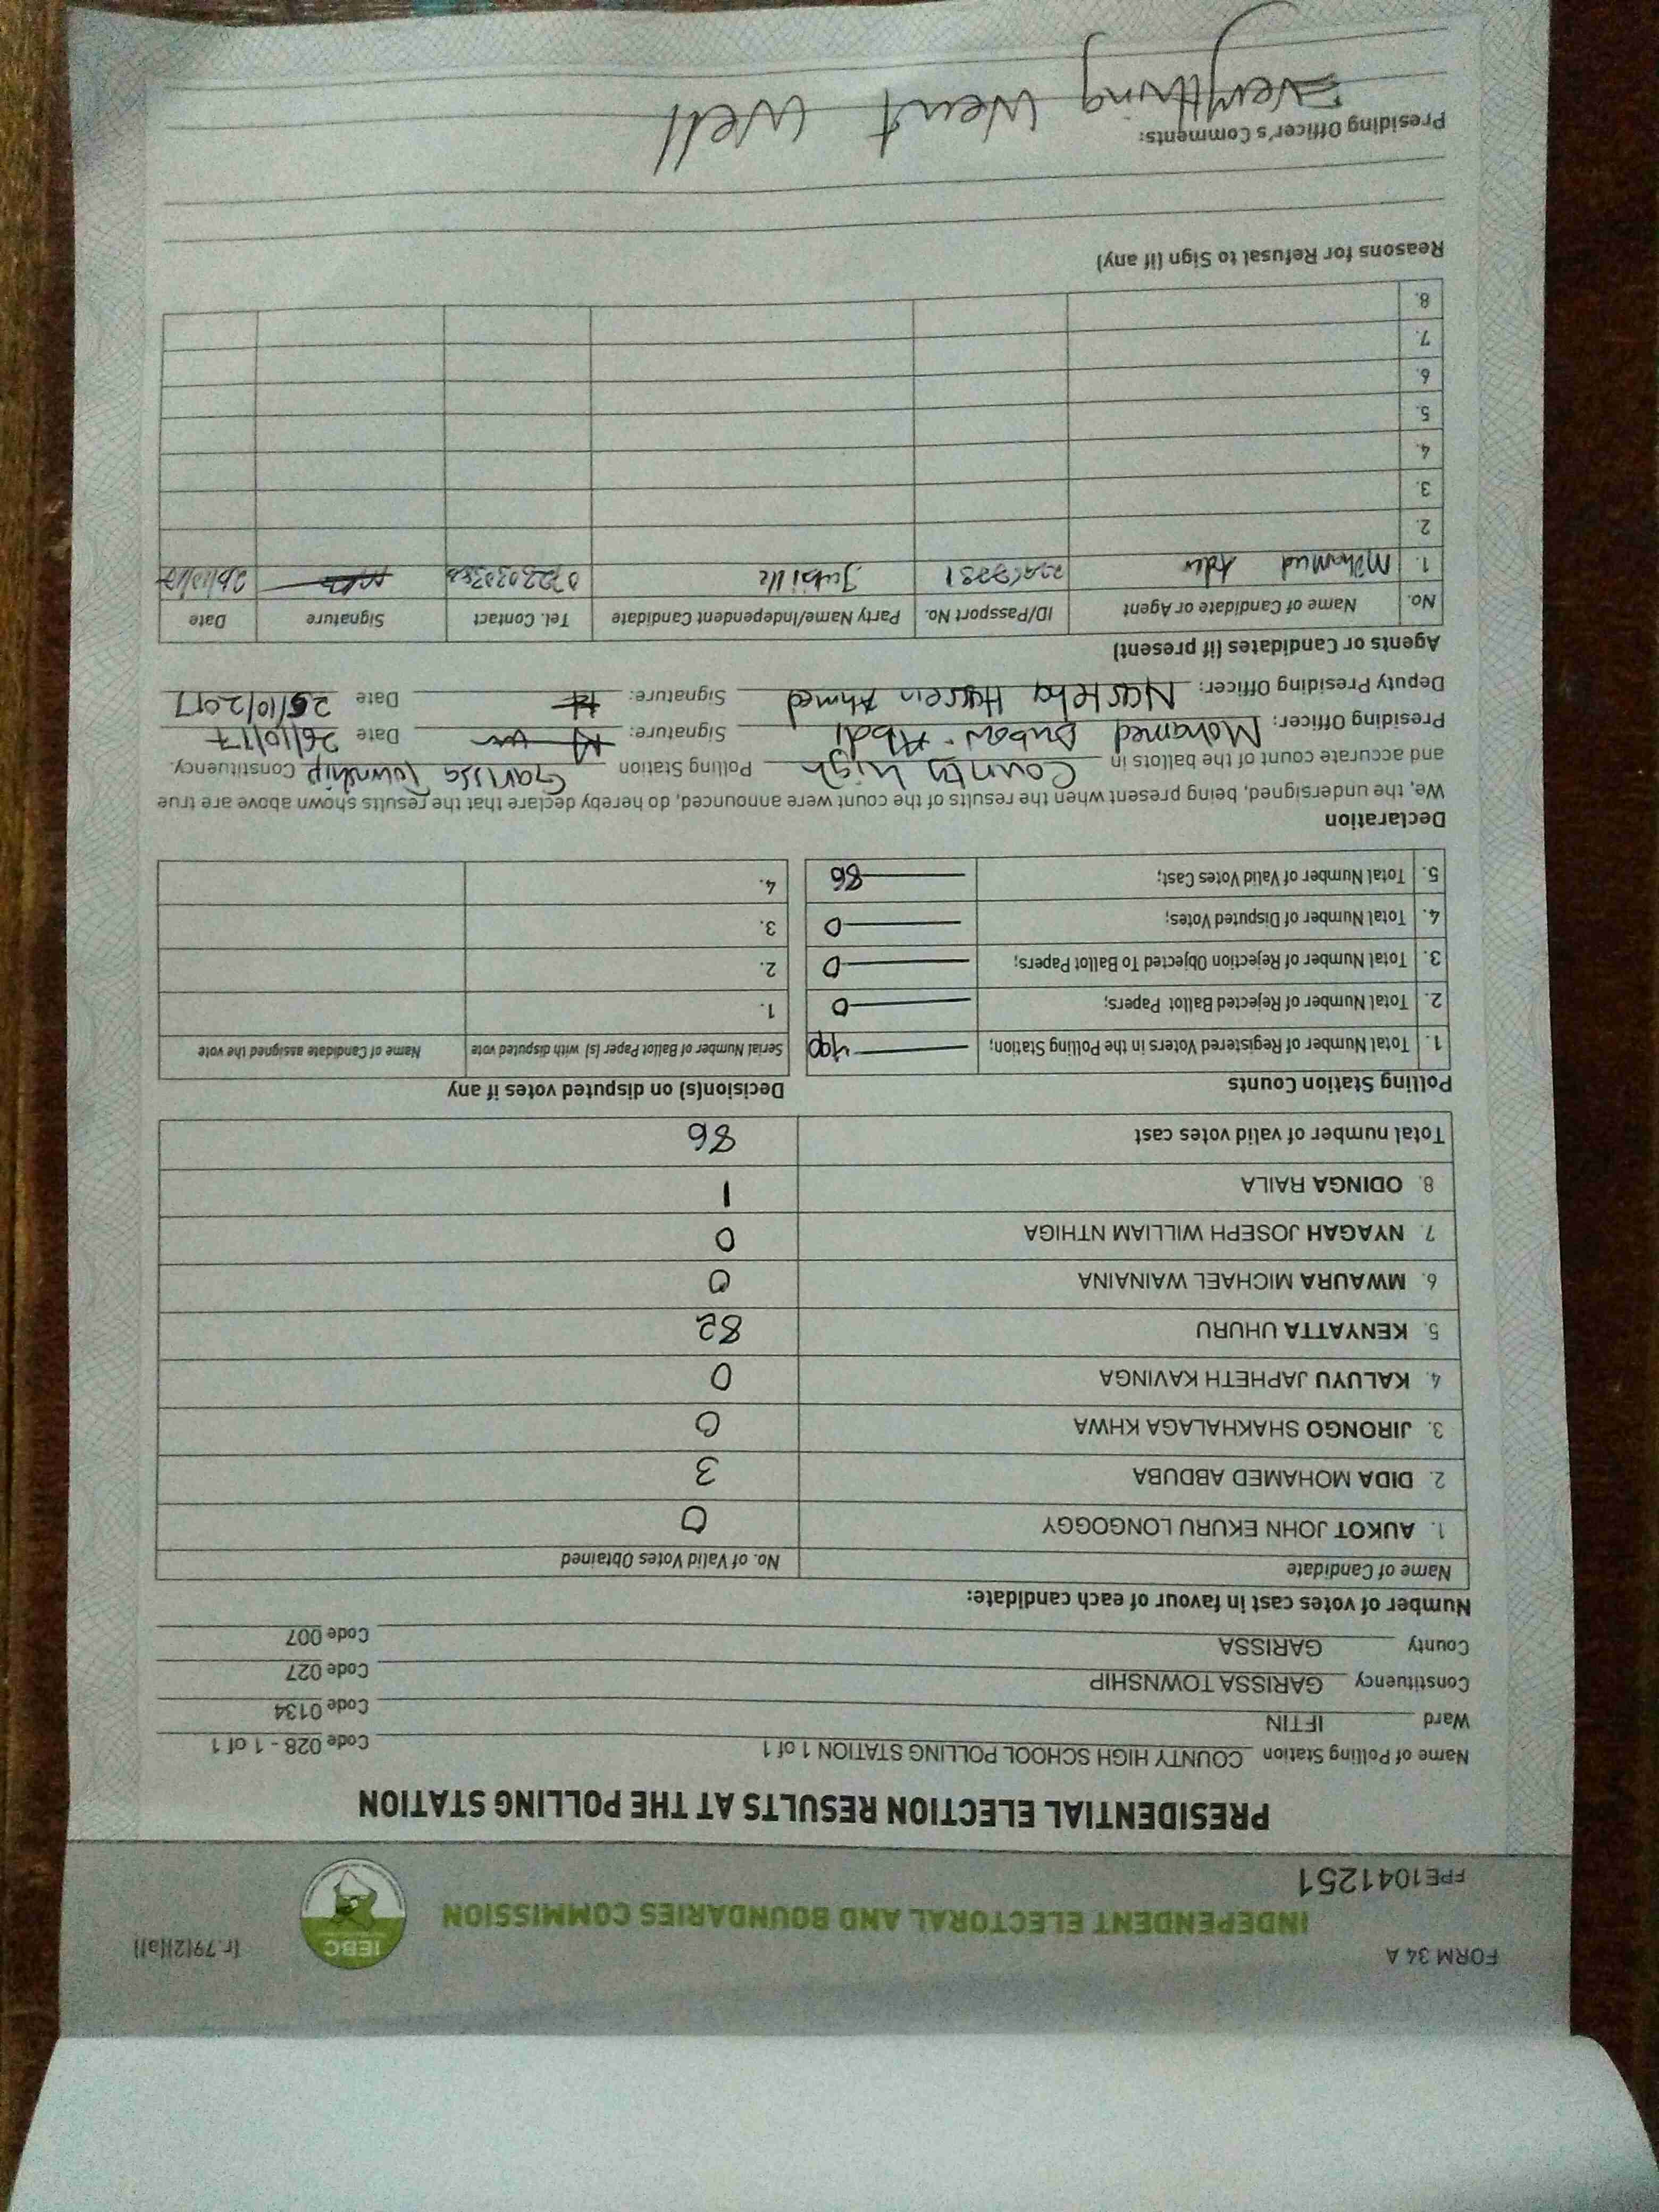 FORM 34 A
[r.79(2)(a)]
INDEPENDENT ELECTORAL AND BOUNDARIES COMMISSION
IEBC
FPE1041251
PRESIDENTIAL ELECTION RESULTS AT THE POLLING STATION
Name of Polling Station COUNTY HIGH SCHOOL POLLING STATION 1 of 1 Code 028 - 1 of 1
Ward IFTIN Code 0134
Constituency GARISSA TOWNSHIP Code 027
County GARISSA Code 007
Number of votes cast in favour of each candidate:
Name of Candidate No. of Valid Votes Obtained
1. AUKOT JOHN EKURU LONGOGGY 0
2. DIDA MOHAMED ABDUBA 3
3. JIRONGO SHAKHALAGA KHWA 0
4. KALUYU JAPHETH KAVINGA 0
5. KENYATTA UHURU 82
6. MWAURA MICHAEL WAINAINA 0
7. NYAGAH JOSEPH WILLIAM NTHIGA 0
8. ODINGA RAILA 1
Total number of valid votes cast 86
Polling Station Counts
1. Total Number of Registered Voters in the Polling Station;
2. Total Number of Rejected Ballot Papers; 0
3. Total Number of Rejection Objected To Ballot Papers; 0
4. Total Number of Disputed Votes; 0
5. Total Number of Valid Votes Cast; 86
Decision(s) on disputed votes if any
Serial Number of Ballot Paper (s) with disputed vote Name of Candidate assigned the vote
1.
2.
3.
4.
Declaration
We, the undersigned, being present when the results of the count were announced, do hereby declare that the results shown above are true
and accurate count of the ballots in County High Polling Station Garissa Township Constituency.
Presiding Officer: Mohamed Bubow Abdi Signature: Date 26/10/17
Deputy Presiding Officer: Hussein Ahmed Signature: Date 26/10/2017
Agents or Candidates (if present)
No. Name of Candidate or Agent ID/Passport No. Party Name/Independent Candidate Tel. Contact Signature Date
1. Mohamud Aden Jubille 26/10/17
2.
3.
4.
5.
6.
7.
8.
Reasons for Refusal to Sign (if any)
Presiding Officer's Comments:
Everything went well